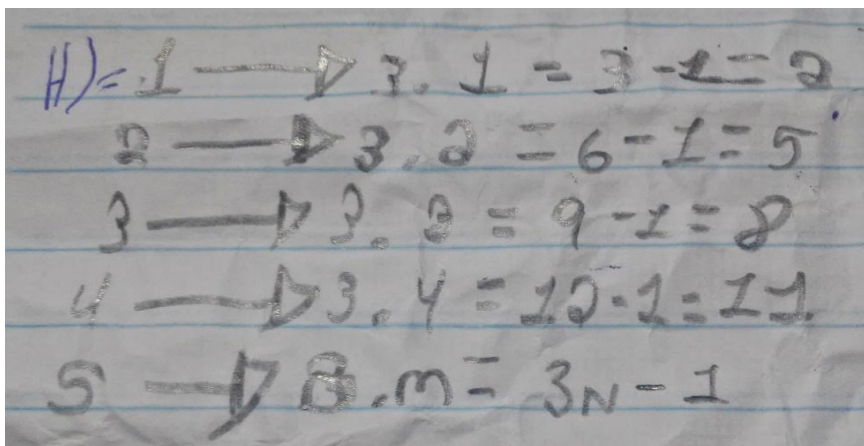 H)= 1 → 3. 1 = 3 - 1 = 2
2 → 3. 2 = 6 - 1 = 5
3 → 3. 3 = 9 - 1 = 8
4 → 3. 4 = 12 - 1 = 11
5 → 3. n = 3N - 1